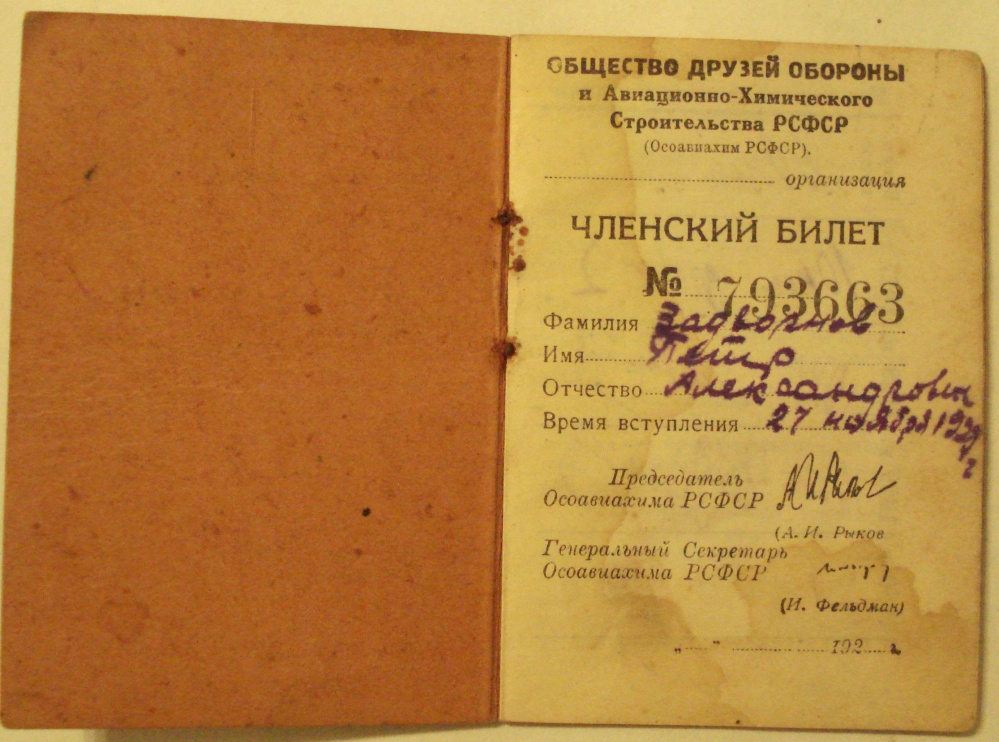 ОБЩЕСТВО ДРУЗЕЙ ОБОРОНЫ
и Авиационно-Химического
Строительства РСФСР
(Осоавиахим РСФСР).
организация
ЧЛЕНСКИЙ БИЛЕТ
№ 793663
Фамилия Задворнов
Имя Петр
Отчество Александрович
Время вступления 27 ноября 1929 г
Председатель
Осоавиахима РСФСР
(А. И. Рыков
Генеральный Секретарь
Осоавиахима РСФСР
(И. Фельдман)
„ “ 192 г.